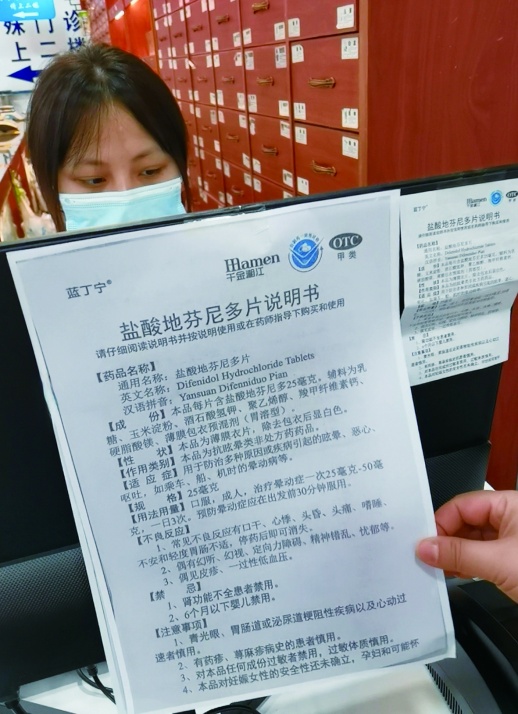 诊
门
上二楼
蓝丁宁®
Hamen
千金湘江
OTC
甲类
盐酸地芬尼多片说明书
请仔细阅读说明书并按说明使用或在药师指导下购买和使用
【药品名称】
通用名称：盐酸地芬尼多片
英文名称：Difenidol Hydrochloride Tablets
汉语拼音：Yansuan Difenniduo Pian
【成 份】本品每片含盐酸地芬尼多25毫克，辅料为乳
糖、玉米淀粉、酒石酸氢钾、聚乙烯醇、羧甲纤维素钙、
硬脂酸镁、薄膜包衣预混剂（胃溶型）。
【性 状】本品为薄膜衣片，除去包衣后显白色。
【作用类别】本品为抗眩晕类非处方药药品。
【适 应 症】用于防治多种原因或疾病引起的眩晕、恶心、
呕吐，如乘车、船、机时的晕动病等。
【规 格】25毫克
【用法用量】口服，成人，治疗晕动症一次25毫克-50毫
克，一日3次。预防晕动症应在出发前30分钟服用。
【不良反应】
1、常见不良反应有口干、心悸、头昏、头痛、嗜睡、
不安和轻度胃肠不适，停药后即可消失。
2、偶有幻听、幻视、定向力障碍、精神错乱、忧郁等。
3、偶见皮疹、一过性低血压。
【禁 忌】
1、肾功能不全患者禁用。
2、6个月以下婴儿禁用。
【注意事项】
1、青光眼、胃肠道或泌尿道梗阻性疾病以及心动过
速者慎用。
2、有药疹、荨麻疹病史的患者慎用。
3、对本品任何成份过敏者禁用，过敏体质慎用。
4、本品对妊娠女性的安全性还未确立，孕妇和可能怀
蓝丁宁
Hamen
千金湘江
盐酸地芬尼多片说明书